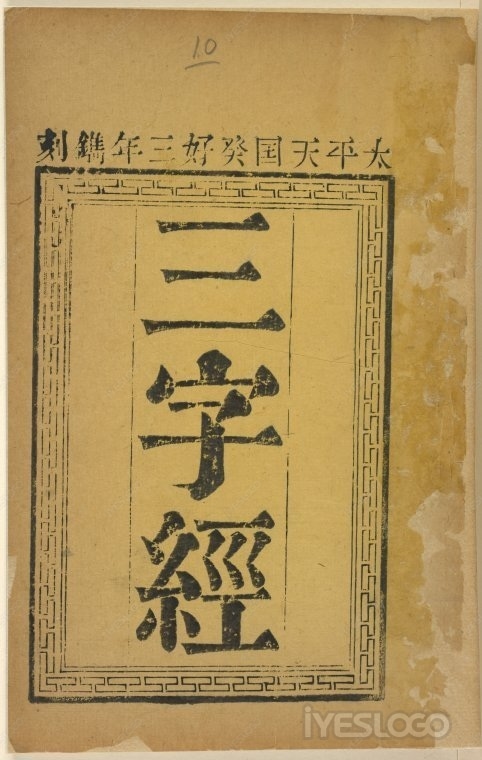 10
太平天囯癸好三年鐫刻
三字經
iYESLOGO